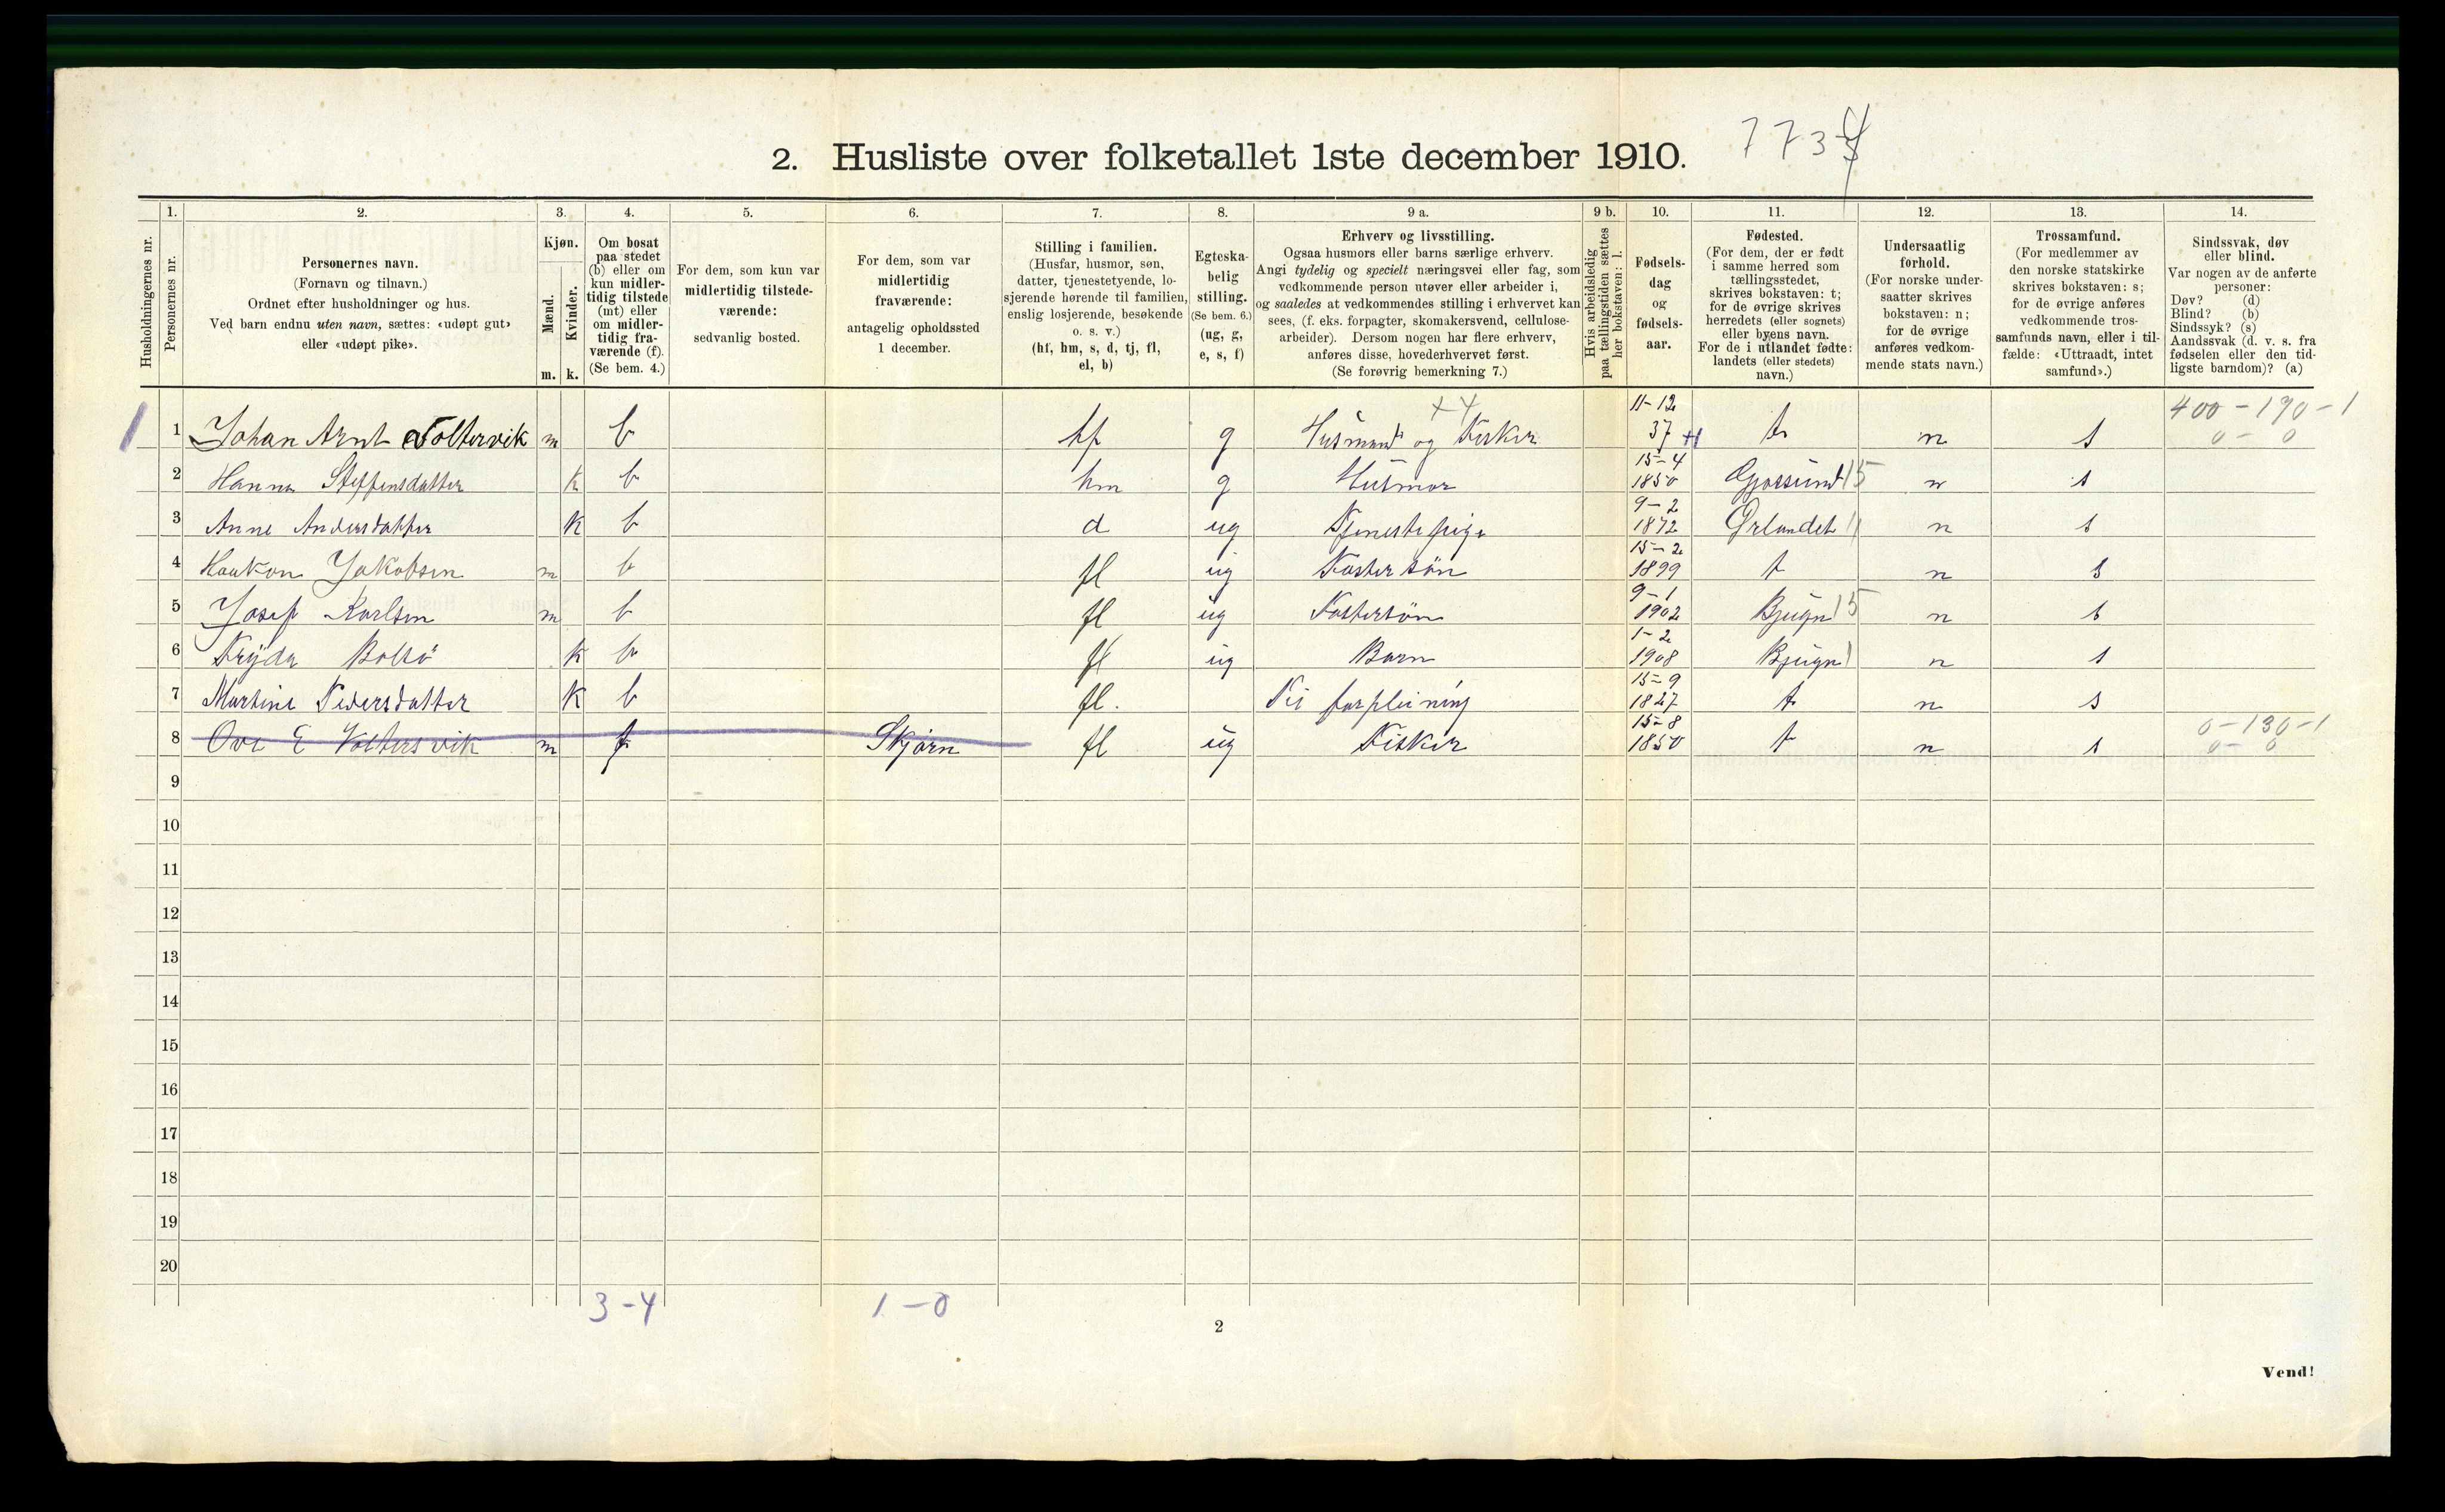 2. Husliste over folketallet 1ste december 1910.
1. 2. 3. 4. 5. 6. 7. 8. 9 a. 9 b. 10. 11. 12. 13. 14.
Husholdningernes nr.
Personernes nr.
Personernes navn.
(Fornavn og tilnavn.)
Ordnet efter husholdninger og hus.
Ved barn endnu uten navn, sættes: «udøpt gut»
eller «udøpt pike».
Kjøn.
Mænd.
Kvinder.
m. k.
Om bosat
paa stedet
(b) eller om
kun midler-
tidig tilstede
(mt) eller
om midler-
tidig fra-
værende (f).
(Se bem. 4.)
For dem, som kun var
midlertidig tilstede-
værende:
sedvanlig bosted.
For dem, som var
midlertidig
fraværende:
antagelig opholdssted
1 december.
Stilling i familien.
(Husfar, husmor, søn,
datter, tjenestetyende, lo-
sjerende hørende til familien,
enslig losjerende, besøkende
o. s. v.)
(hf, hm, s, d, tj, fl,
el, b)
Egteska-
belig
stilling.
(Se bem. 6.)
(ug, g,
e, s, f)
Erhverv og livsstilling.
Ogsaa husmors eller barns særlige erhverv.
Angi tydelig og specielt næringsvei eller fag, som
vedkommende person utøver eller arbeider i,
og saaledes at vedkommendes stilling i erhvervet kan
sees, (f. eks. forpagter, skomakersvend, cellulose-
arbeider). Dersom nogen har flere erhverv,
anføres disse, hovederhvervet først.
(Se forøvrig bemerkning 7.)
Hvis arbeidsledig
paa tællingstiden sættes
her bokstaven: l.
Fødsels-
dag
og
fødsels-
aar.
Fødested.
(For dem, der er født
i samme herred som
tællingsstedet,
skrives bokstaven: t;
for de øvrige skrives
herredets (eller sognets)
eller byens navn.
For de i utlandet fødte:
landets (eller stedets)
navn.)
Undersaatlig
forhold.
(For norske under-
saatter skrives
bokstaven: n;
for de øvrige
anføres vedkom-
mende stats navn.)
Trossamfund.
(For medlemmer av
den norske statskirke
skrives bokstaven: s;
for de øvrige anføres
vedkommende tros-
samfunds navn, eller i til-
fælde: «Uttraadt, intet
samfund».)
Sindssvak, døv
eller blind.
Var nogen av de anførte
personer:
Døv? (d)
Blind? (b)
Sindssyk? (s)
Aandssvak (d. v. s. fra
fødselen eller den tid-
ligste barndom)? (a)
1 1 Johan Arnt Voltervik m b hf g Husmand og Fisker 11-12 37 t n s 400-190-1 0-0
2 Hanna Steffensdatter k b hm g Husmor 15-4 1850 Gjæssund 15 n s
3 Anne Andersdatter k b d ug Tjenestepige 9-2 1872 Ørlandet n s
4 Haakon Jakobsen m b fl ug Fostersön 15-2 1899 t n s
5 Josef Karlsen m b fl ug Fostersön 9-1 1902 Bjugn 15 n s
6 Fryda Boltö k b fl ug Barn 1-2 1908 Bjugn n s
7 Martine Pedersdatter k b fl. forpleining 15-9 1827 t n s
8 Ove E Voltersvik m f Skjörn fl ug Fisker 15-8 1850 t n s 0-130-1 0-0
9
10
11
12
13
14
15
16
17
18
19
20
3-4 1-0
2
Vend!